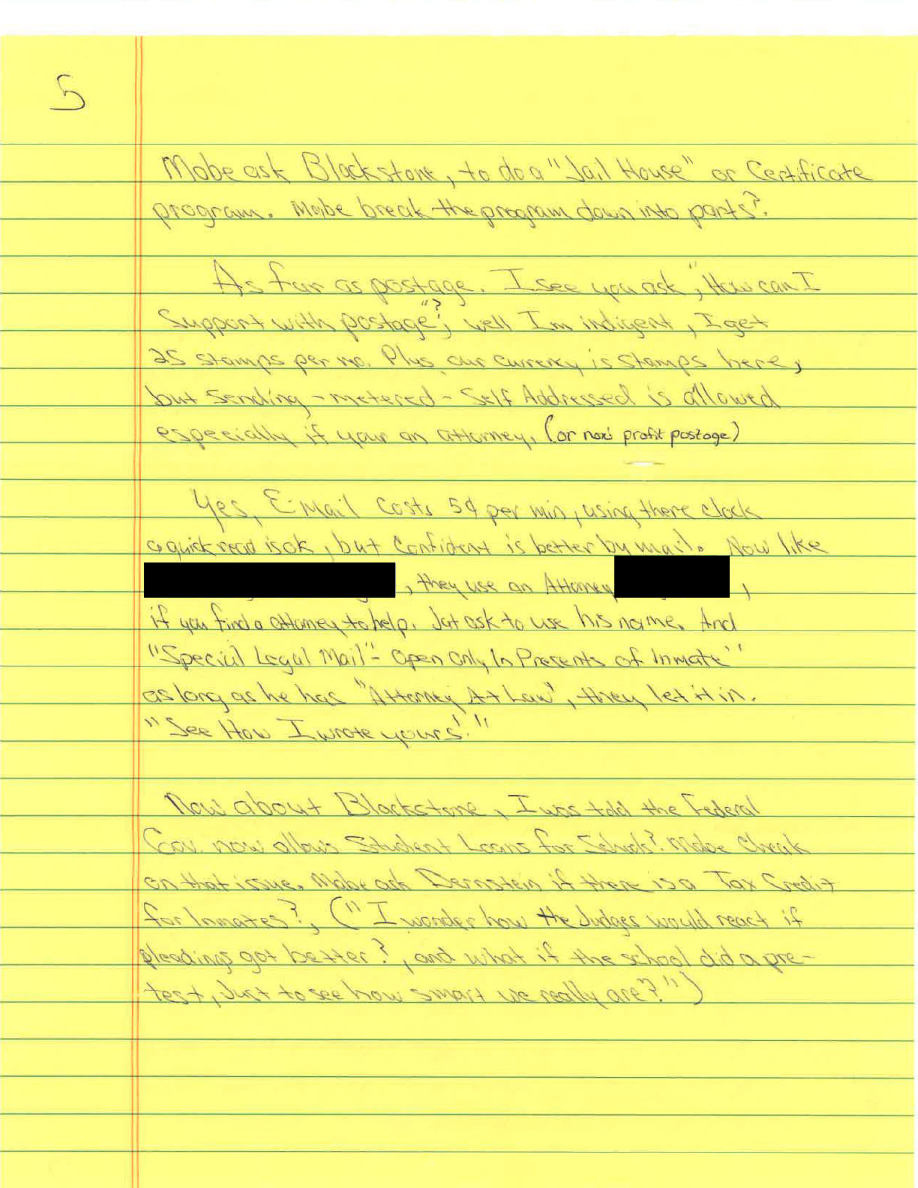 5
Mabe ask Blackstone, to do a "Jail House" or Certificate
program. Mabe break the program down into parts?.
As far as postage. I see you ask, "How can I
Support with postage"?, well Im indigent, I get
25 stamps per mo. Plus our currency is stamps here,
but Sending - metered - Self Addressed is allowed
especially if your an attorney, (or non profit postage)
Yes, E-Mail Costs 5¢ per min, using there clock
a quick read is ok, but Confident is better by mail. Now like
, they use an Attorney ,
if you find a attorney to help. Jut ask to use his name. And
"Special Legal Mail"- Open Only In Presents of Inmate"
as long as he has "Attorney At Law", they let it in.
"See How I wrote yours!"
Now about Blackstone, I was told the Federal
Gov. now allows Student Loans for Schools? Mabe Check
on that issue. Mabe ask Bernstein if there is a Tax Credit
for Inmates?, ("I wonder how the Judges would react if
pleadings got better?, and what if the school did a pre-
test, Just to see how smart we really are?")